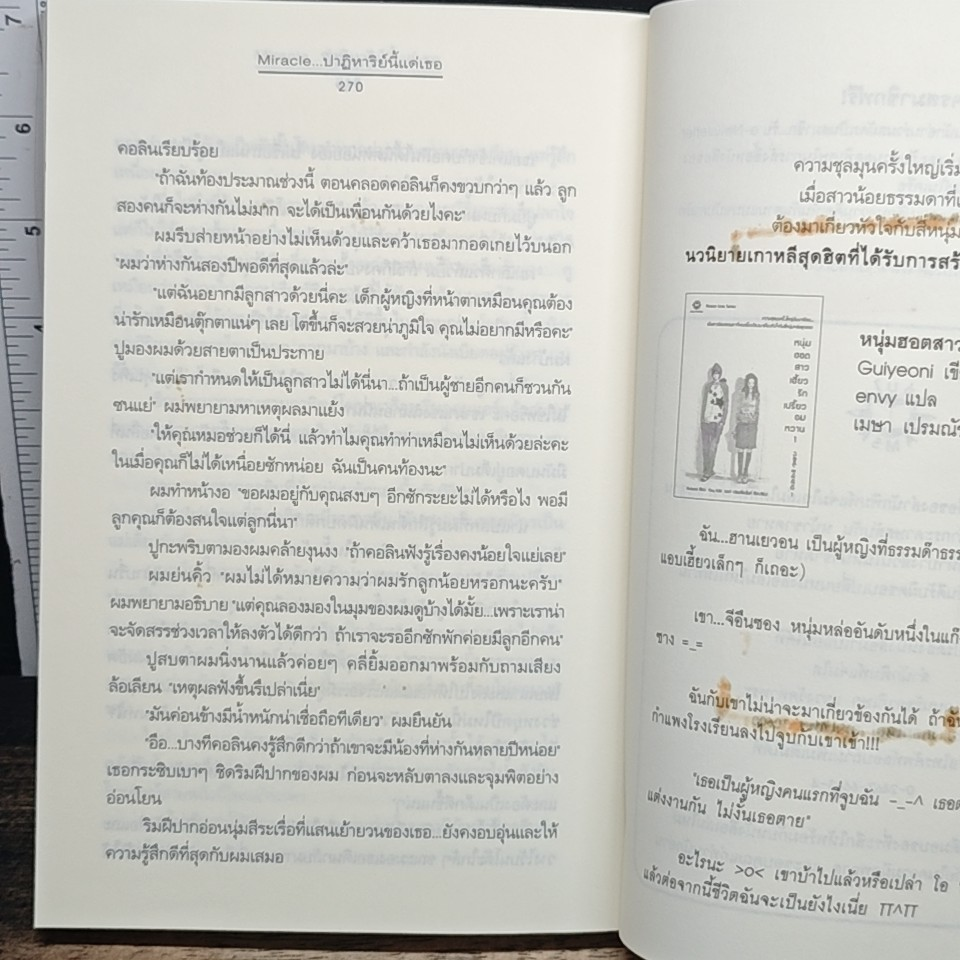 Miracle...ปาฏิหาริย์นี้แด่เธอ
270
คอลินเรียบร้อย
"ถ้าฉันท้องประมาณช่วงนี้ ตอนคลอดคอลินก็คงขวบกว่าๆ แล้ว ลูก
สองคนก็จะห่างกันไม่มาก จะได้เป็นเพื่อนกันด้วยไงคะ"
ผมรีบส่ายหน้าอย่างไม่เห็นด้วยและคว้าเธอมากอดเกยไว้บนอก
"ผมว่าห่างกันสองปีพอดีที่สุดแล้วล่ะ"
"แต่ฉันอยากมีลูกสาวด้วยนี่คะ เด็กผู้หญิงที่หน้าตาเหมือนคุณต้อง
น่ารักเหมือนตุ๊กตาแน่ๆ เลย โตขึ้นก็จะสวยน่าภูมิใจ คุณไม่อยากมีหรือคะ"
ปูมองผมด้วยสายตาเป็นประกาย
"แต่เรากำหนดให้เป็นลูกสาวไม่ได้นี่นา...ถ้าเป็นผู้ชายอีกคนก็ชวนกัน
ซนแย่" ผมพยายามหาเหตุผลมาแย้ง
"ให้คุณหมอช่วยก็ได้นี่ แล้วทำไมคุณทำท่าเหมือนไม่เห็นด้วยล่ะคะ
ในเมื่อคุณก็ไม่ได้เหนื่อยซักหน่อย ฉันเป็นคนท้องนะ"
ผมทำหน้างอ "ขอผมอยู่กับคุณสงบๆ อีกซักระยะไม่ได้หรือไง พอมี
ลูกคุณก็ต้องสนใจแต่ลูกนี่นา"
ปูกะพริบตามองผมคล้ายงุนงง "ถ้าคอลินฟังรู้เรื่องคงน้อยใจแย่เลย"
ผมย่นคิ้ว "ผมไม่ได้หมายความว่าผมรักลูกน้อยหรอกนะครับ"
ผมพยายามอธิบาย "แต่คุณลองมองในมุมของผมดูบ้างได้มั้ย...เพราะเราน่า
จะจัดสรรช่วงเวลาให้ลงตัวได้ดีกว่า ถ้าเราจะรออีกซักพักค่อยมีลูกอีกคน"
ปูสบตาผมนิ่งนานแล้วค่อยๆ คลี่ยิ้มออกมาพร้อมกับถามเสียง
ล้อเลียน "เหตุผลฟังขึ้นรึเปล่าเนี่ย"
"มันค่อนข้างมีน้ำหนักน่าเชื่อถือทีเดียว" ผมยืนยัน
"อือ...บางทีคอลินคงรู้สึกดีกว่าถ้าเขาจะมีน้องที่ห่างกันหลายปีหน่อย"
เธอกระซิบเบาๆ ชิดริมฝีปากของผม ก่อนจะหลับตาลงและจุมพิตอย่าง
อ่อนโยน
ริมฝีปากอ่อนนุ่มสีระเรื่อที่แสนเย้ายวนของเธอ...ยังคงอบอุ่นและให้
ความรู้สึกดีที่สุดกับผมเสมอ
ความชุลมุนครั้งใหญ่เริ่ม
เมื่อสาวน้อยธรรมดาที่
ต้องมาเกี่ยวหัวใจกับสี่หนุ่ม
นวนิยายเกาหลีสุดฮิตที่ได้รับการสร้
หนุ่ม
ฮอต
สาว
เฮี้ยว
รัก
เปรี้ยว
อม
หวาน
1
หนุ่มฮอตสาว
Guiyeoni เขี
envy แปล
เมษา เปรมณั
ฉัน...ฮานเยวอน เป็นผู้หญิงที่ธรรมด๊าธรร
แอบเฮี้ยวเล็กๆ ก็เถอะ)
เขา...จีอึนซอง หนุ่มหล่ออันดับหนึ่งในแก๊
ชาง =_=
ฉันกับเขาไม่น่าจะมาเกี่ยวข้องกันได้ ถ้าฉัน
กำแพงโรงเรียนลงไปจูบกับเขาเข้า!!!
"เธอเป็นผู้หญิงคนแรกที่จูบฉัน -_-^ เธอต
แต่งงานกัน ไม่งั้นเธอตาย"
อะไรนะ >o< เขาบ้าไปแล้วหรือเปล่า โอ
แล้วต่อจากนี้ชีวิตฉันจะเป็นยังไงเนี่ย TT^TT
7
6
5
4